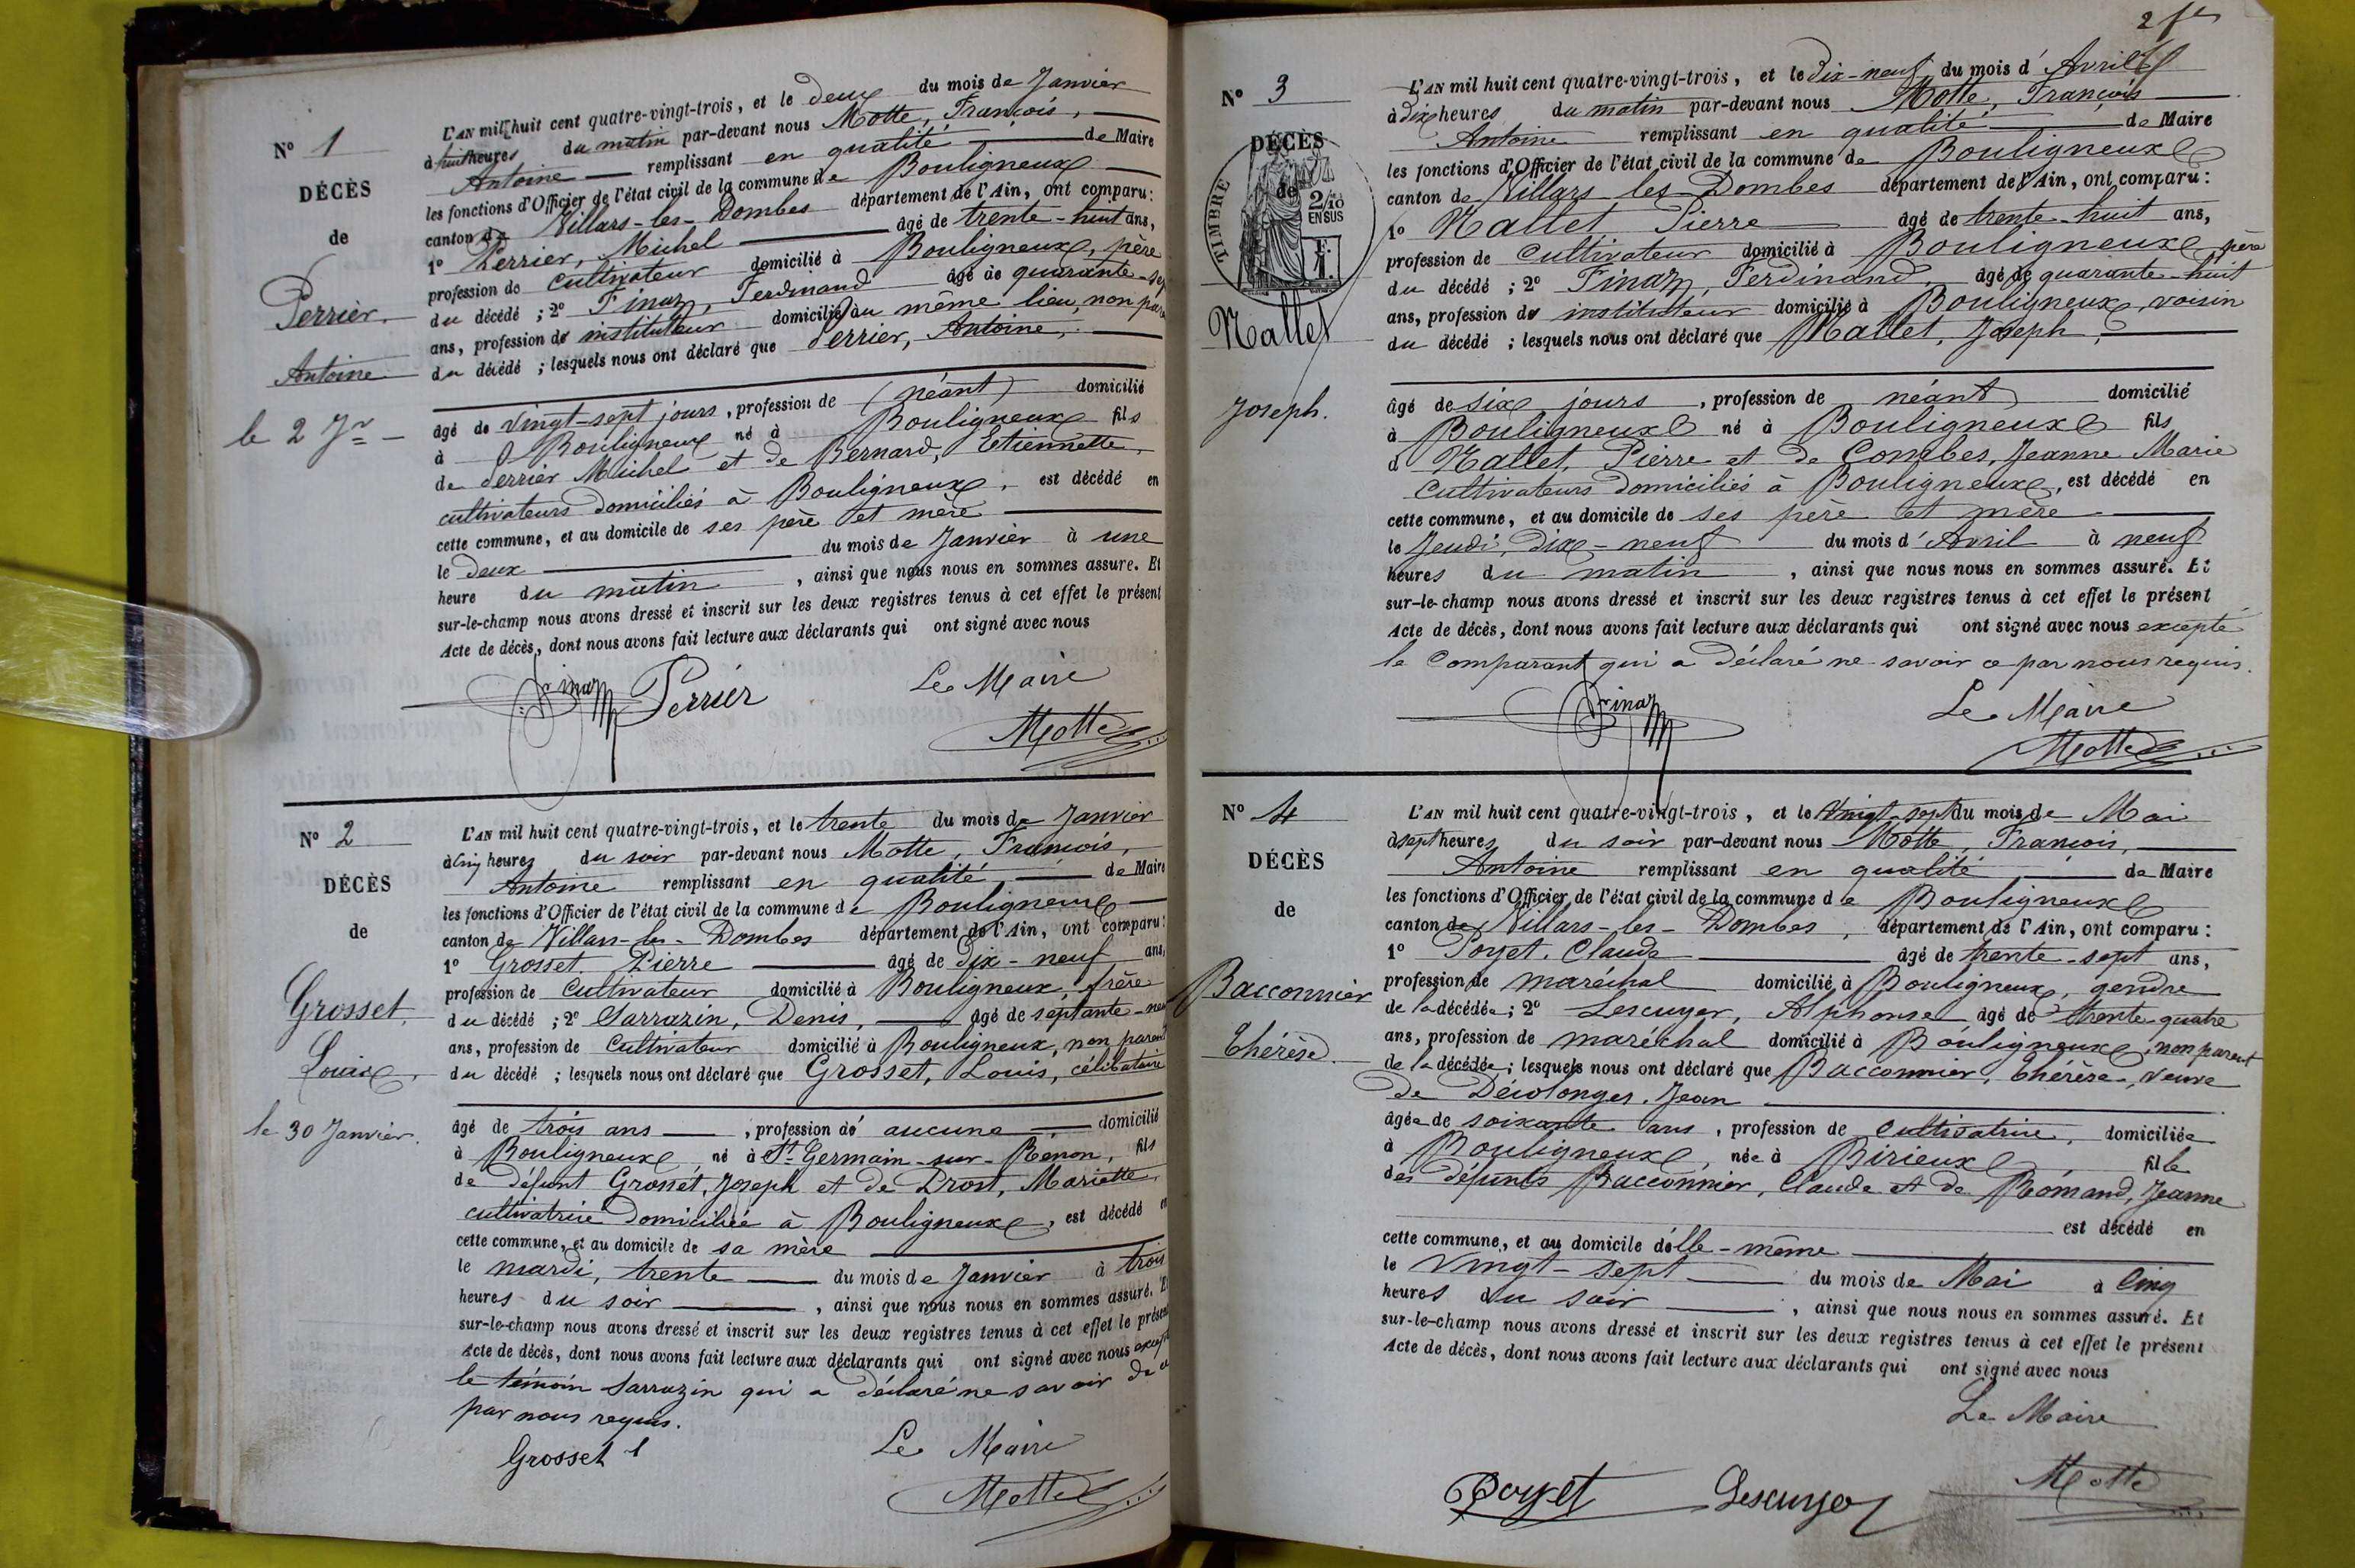 N° 1
DÉCÈS
de
Perrier
Antoine
le 2 Jer
L'AN mil huit cent quatre-vingt-trois, et le deux du mois de Janvier
à huit heures du matin par-devant nous Motte, François,
Antoine remplissant en qualité de Maire
les fonctions d'Officier de l'état civil de la commune de Bouligneux
canton de Villars-les-Dombes département de l'Ain, ont comparu:
1° Perrier, Michel âgé de trente-huit ans,
profession de cultivateur domicilié à Bouligneux, père
du décédé; 2° Finaz, Ferdinand âgé de quarante-sept
ans, profession de instituteur domicilié au même lieu, non par
du décédé; lesquels nous ont déclaré que Perrier, Antoine,
âgé de vingt-sept jours, profession de (néant) domicilié
à Bouligneux né à Bouligneux fils
de Perrier Michel et de Bernard, Etiennette,
cultivateurs domiciliés à Bouligneux, est décédé en
cette commune, et au domicile de ses père et mère
le deux du mois de Janvier à une
heure du matin, ainsi que nous nous en sommes assuré. Et
sur-le-champ nous avons dressé et inscrit sur les deux registres tenus à cet effet le présent
Acte de décès, dont nous avons fait lecture aux déclarants qui ont signé avec nous
Finaz Perrier Le Maire
Motte
N° 2
DÉCÈS
de
Grosset,
Louis,
le 30 Janvier.
L'AN mil huit cent quatre-vingt-trois, et le trente du mois de Janvier
à cinq heures du soir par-devant nous Motte, François,
Antoine remplissant en qualité de Maire
les fonctions d'Officier de l'état civil de la commune de Bouligneux
canton de Villars-les-Dombes département de l'Ain, ont comparu:
1° Grosset Pierre âgé de dix-neuf ans,
profession de cultivateur domicilié à Bouligneux, frère
du décédé; 2° Sarrazin, Denis, âgé de septante-neuf
ans, profession de cultivateur domicilié à Bouligneux, non parent
du décédé; lesquels nous ont déclaré que Grosset, Louis, célibataire
âgé de trois ans, profession de aucune domicilié
à Bouligneux né à St Germain-sur-Renon, fils
de défunt Grosset, Joseph et de Prost, Mariette,
cultivatrice domiciliée à Bouligneux, est décédé en
cette commune, et au domicile de sa mère
le mardi, trente du mois de Janvier à trois
heures du soir, ainsi que nous nous en sommes assuré. Et
sur-le-champ nous avons dressé et inscrit sur les deux registres tenus à cet effet le présent
Acte de décès, dont nous avons fait lecture aux déclarants qui ont signé avec nous excepté
le témoin Sarrazin qui a déclaré ne savoir de ce
par nous requis.
Grosset Le Maire
Motte
N° 3
DÉCÈS
de
TIMBRE
2/10
EN SUS
Mallet
Joseph.
L'AN mil huit cent quatre-vingt-trois, et le dix-neuf du mois d'Avril
à dix heures du matin par-devant nous Motte, François
Antoine remplissant en qualité de Maire
les fonctions d'Officier de l'état civil de la commune de Bouligneux
canton de Villars les Dombes département de l'Ain, ont comparu:
1° Mallet Pierre âgé de trente-huit ans,
profession de cultivateur domicilié à Bouligneux, père
du décédé; 2° Finaz, Ferdinand, âgé de quarante-huit
ans, profession de instituteur domicilié à Bouligneux, voisin
du décédé; lesquels nous ont déclaré que Mallet, Joseph,
âgé de six jours, profession de néant domicilié
à Bouligneux né à Bouligneux fils
d Mallet, Pierre et de Combes, Jeanne Marie
cultivateurs domiciliés à Bouligneux, est décédé en
cette commune, et au domicile de ses père et mère
le Jeudi, dix-neuf du mois d'Avril à neuf
heures du matin, ainsi que nous nous en sommes assuré. Et
sur-le-champ nous avons dressé et inscrit sur les deux registres tenus à cet effet le présent
Acte de décès, dont nous avons fait lecture aux déclarants qui ont signé avec nous excepté
le comparant qui a déclaré ne savoir ce par nous requis.
Finaz Le Maire
Motte
N° 4
DÉCÈS
de
Bacconnier
Thérèse.
L'AN mil huit cent quatre-vingt-trois, et le vingt-sept du mois de Mai
à sept heures du soir par-devant nous Motte, François,
Antoine remplissant en qualité de Maire
les fonctions d'Officier de l'état civil de la commune de Bouligneux
canton de Villars-les-Dombes, département de l'Ain, ont comparu:
1° Poyet, Claude âgé de trente-sept ans,
profession de maréchal domicilié à Bouligneux, gendre
de la décédée; 2° Lescuyer, Alphonse âgé de trente-quatre
ans, profession de maréchal domicilié à Bouligneux, non parent
de la décédée; lesquels nous ont déclaré que Bacconnier, Thérèse, veuve
de Décolonges, Jean
âgée de soixante ans, profession de cultivatrice, domiciliée
à Bouligneux, née à Birieux fille
des défunts Bacconnier, Claude et de Romand, Jeanne
est décédé en
cette commune, et au domicile d'elle-même
le vingt-sept du mois de Mai à cinq
heures du soir, ainsi que nous nous en sommes assuré. Et
sur-le-champ nous avons dressé et inscrit sur les deux registres tenus à cet effet le présent
Acte de décès, dont nous avons fait lecture aux déclarants qui ont signé avec nous
Le Maire
Poyet Lescuyer Motte